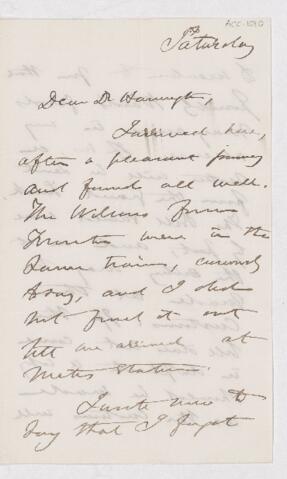 ACC-1590
Saturday
Dear Dr Harrington,
I arrived here,
after a pleasant journey
and found all well.
The Wilsons from
Toronto were in the
same train, curiously
, and I did
not find it out
till we arrived at
Metis Station.
I write now to
say that I forgot